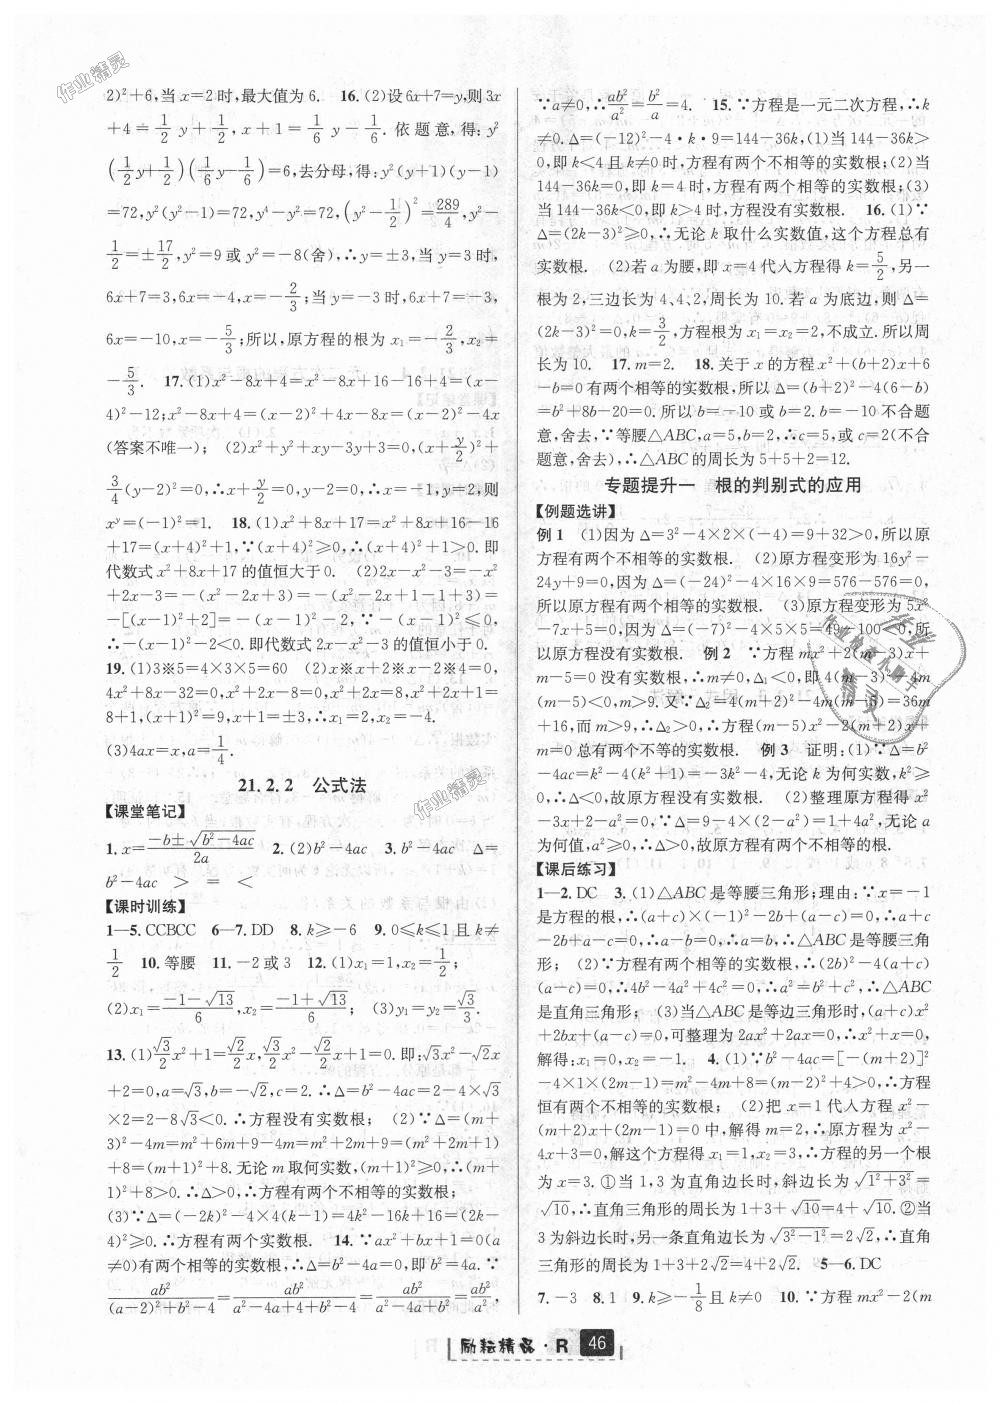 2)²+6,当 x=2时,最大值为 6.  16. (2)设6x+7=y,则3x
+4=1/2 y+1/2, x+1=1/6 y-1/6. 依题意,得: y²
(1/2 y+1/2)(1/6 y-1/6)=6,去分母,得: y²(y+1)(y-1)
=72,y²(y²-1)=72,y⁴-y²=72,(y²-1/2)²=289/4,y²-
1/2=±17/2,y²=9或y²=-8(舍),∴y=±3,当y=3时,
6x+7=3,6x=-4,x=-2/3;当y=-3时,6x+7=-3,
6x=-10,x=-5/3;所以,原方程的根为x₁=-2/3,x₂=
-5/3.  17. (1)x²-8x+4=x²-8x+16-16+4=(x-
4)²-12;x²-8x+4=(x-2)²+4x-8x=(x-2)²-4x
(答案不唯一);  (2)x²+y²+xy-3y+3=0,(x+y/2)²+
3/4(y-2)²=0,∴x+y/2=0,y-2=0,∴x=-1,y=2,则
x^y=(-1)²=1.  18. (1)x²+8x+17=x²+8x+16-16
+17=(x+4)²+1,∵(x+4)²≥0,∴(x+4)²+1>0.即
代数式x²+8x+17的值恒大于0.  (2)2x-x²-3=-x²
+2x-3=-(x²-2x+3)=-(x²-2x+1-1+3)=
-[(x-1)²+2]=-(x-1)²-2,∵-(x-1)²≤0,
∴-(x-1)²-2<0.即代数式2x-x²-3的值恒小于0.
19. (1)3※5=4×3×5=60  (2)x※x+2※x-2※4=0,
4x²+8x-32=0,x²+2x-8=0,x²+2x=8,x²+2x+1=
8+1,(x+1)²=9,x+1=±3,∴x₁=2,x₂=-4.
(3)4ax=x,a=1/4.
21.2.2  公式法
【课堂笔记】
1. x=(-b±√(b²-4ac))/2a  2. (2)b²-4ac  3. b²-4ac  Δ=
b²-4ac  >  =  <
【课时训练】
1—5. CCBCC  6—7. DD  8. k≥-6  9. 0≤k≤1且k≠
1/2  10. 等腰  11. -2或3  12. (1)x₁=1,x₂=1/2;
(2)x₁=(-1-√13)/6,x₂=(-1+√13)/6;  (3)y₁=y₂=√3/3.
13. (1)√3/2 x²+1=√2/2 x,√3/2 x²-√2/2 x+1=0.即:√3x²-√2x
+2=0,a=√3,b=-√2,c=2.∴Δ=b²-4ac=2-4×√3
×2=2-8√3<0.∴方程没有实数根;  (2)∵Δ=(m+
3)²-4m=m²+6m+9-4m=m²+2m+9=(m²+2m+1)
+8=(m+1)²+8.无论m取何实数,(m+1)²≥0,∴(m+
1)²+8>0.∴Δ>0,∴方程有两个不相等的实数根;
(3)∵Δ=(-2k)²-4×4(k-1)=4k²-16k+16=(2k-
4)²≥0,∴方程有两个实数根.  14. ∵ax²+bx+1=0(a
≠0)有两个相等的实数根,∴Δ=b²-4a=0,即b²=4a.∵
ab²/((a-2)²+b²-4)=ab²/(a²-4a+4+b²-4)=ab²/(a²-4a+b²)=ab²/a²,
∵a≠0,∴ab²/a²=b²/a=4.  15. ∵方程是一元二次方程,∴k
≠0.Δ=(-12)²-4·k·9=144-36k,(1)当144-36k>
0,即k<4且k≠0时,方程有两个不相等的实数根;(2)当
144-36k=0,即k=4时,方程有两个相等的实数根;(3)
当144-36k<0,即k>4时,方程没有实数根.  16. (1)∵
Δ=(2k-3)²≥0,∴无论k取什么实数值,这个方程总有
实数根.  (2)若a为腰,即x=4代入方程得k=5/2,另一
根为2,三边长为4、4、2,周长为10.若a为底边,则Δ=
(2k-3)²=0,k=3/2,方程根为x₁=x₂=2,不成立.所以周
长为10.  17. m=2.  18. 关于x的方程x²+(b+2)x+6
-b=0有两个相等的实数根,所以Δ=(b+2)²-4(6-b)
=b²+8b-20=0.所以b=-10或b=2.b=-10不合题
意,舍去,∵等腰△ABC,a=5,b=2,∴c=5,或c=2(不合
题意,舍去),∴△ABC的周长为5+5+2=12.
专题提升一  根的判别式的应用
【例题选讲】
例1  (1)因为Δ=3²-4×2×(-4)=9+32>0,所以原
方程有两个不相等的实数根.  (2)原方程变形为16y²-
24y+9=0,因为Δ=(-24)²-4×16×9=576-576=0,
所以原方程有两个相等的实数根.  (3)原方程变形为5x²
-7x+5=0,因为Δ=(-7)²-4×5×5=49-100<0,所
以原方程没有实数根.  例2  ∵方程mx²+2(m-3)x
+m-5=0没有实数根,∴m≠0,Δ₁<0,即4(m-3)²-4m
(m-5)<0,m>9.又∵Δ₂=4(m+2)²-4m(m-5)=36m
+16,而m>9,∴Δ₂>0,∴方程(m-5)x²-2(m+2)x+
m=0总有两个不等的实数根.  例3  证明:(1)∵Δ=b²
-4ac=k²-4(k²-k+1)=-3k²+4k-4,无论k为何实数,k²≥
0,∴Δ<0,故原方程没有实数根.  (2)整理原方程得x²
-3x+2-a²=0,∵Δ=9-4×(2-a²)=1+4a²,无论a
为何值,a²≥0,∴Δ>0,故原方程有两个不相等的根.
【课后练习】
1—2. DC  3. (1)△ABC是等腰三角形;理由:∵x=-1
是方程的根,∴(a+c)×(-1)²-2b+(a-c)=0,∴a+c-
2b+a-c=0,∴a-b=0,∴a=b,∴△ABC是等腰三角
形;  (2)∵方程有两个相等的实数根,∴(2b)²-4(a+c)
(a-c)=0,∴4b²-4a²+4c²=0,∴a²=b²+c²,∴△ABC
是直角三角形;  (3)当△ABC是等边三角形时,(a+c)x²
+2bx+(a-c)=0,可整理为2ax²+2ax=0,∴x²+x=0,
解得:x₁=0,x₂=-1.  4. (1)∵b²-4ac=[-(m+2)]²
-4×1×(2m-1)=m²-4m+8=(m-2)²+4>0,∴方程
恒有两个不相等的实数根;  (2)把x=1代入方程x²-
(m+2)x+(2m-1)=0中,解得m=2,∴原方程为x²-
4x+3=0,解这个方程得:x₁=1,x₂=3,∴方程的另一个根
为x=3.①当1,3为直角边长时,斜边长为√(1²+3²)=
√10,∴直角三角形的周长为1+3+√10=4+√10.②当
3为斜边长时,另一条直角边长为√(3²-1²)=2√2,∴直角
三角形的周长为1+3+2√2=4+2√2.  5—6. DC
7. -3  8. 1  9. k≥-1/8且k≠0  10. ∵方程mx²-2(m
励耘精品·R  46